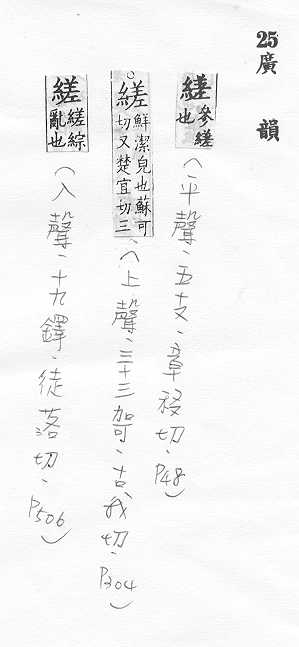 25廣韻
縒參縒也(平聲、五支、章移切、P48)
○縒鮮潔皃也蘇可切又楚宜切三(上聲、三十三哿、古我切、P304)
縒縒綜亂也(入聲、十九鐸、徒落切、P506)